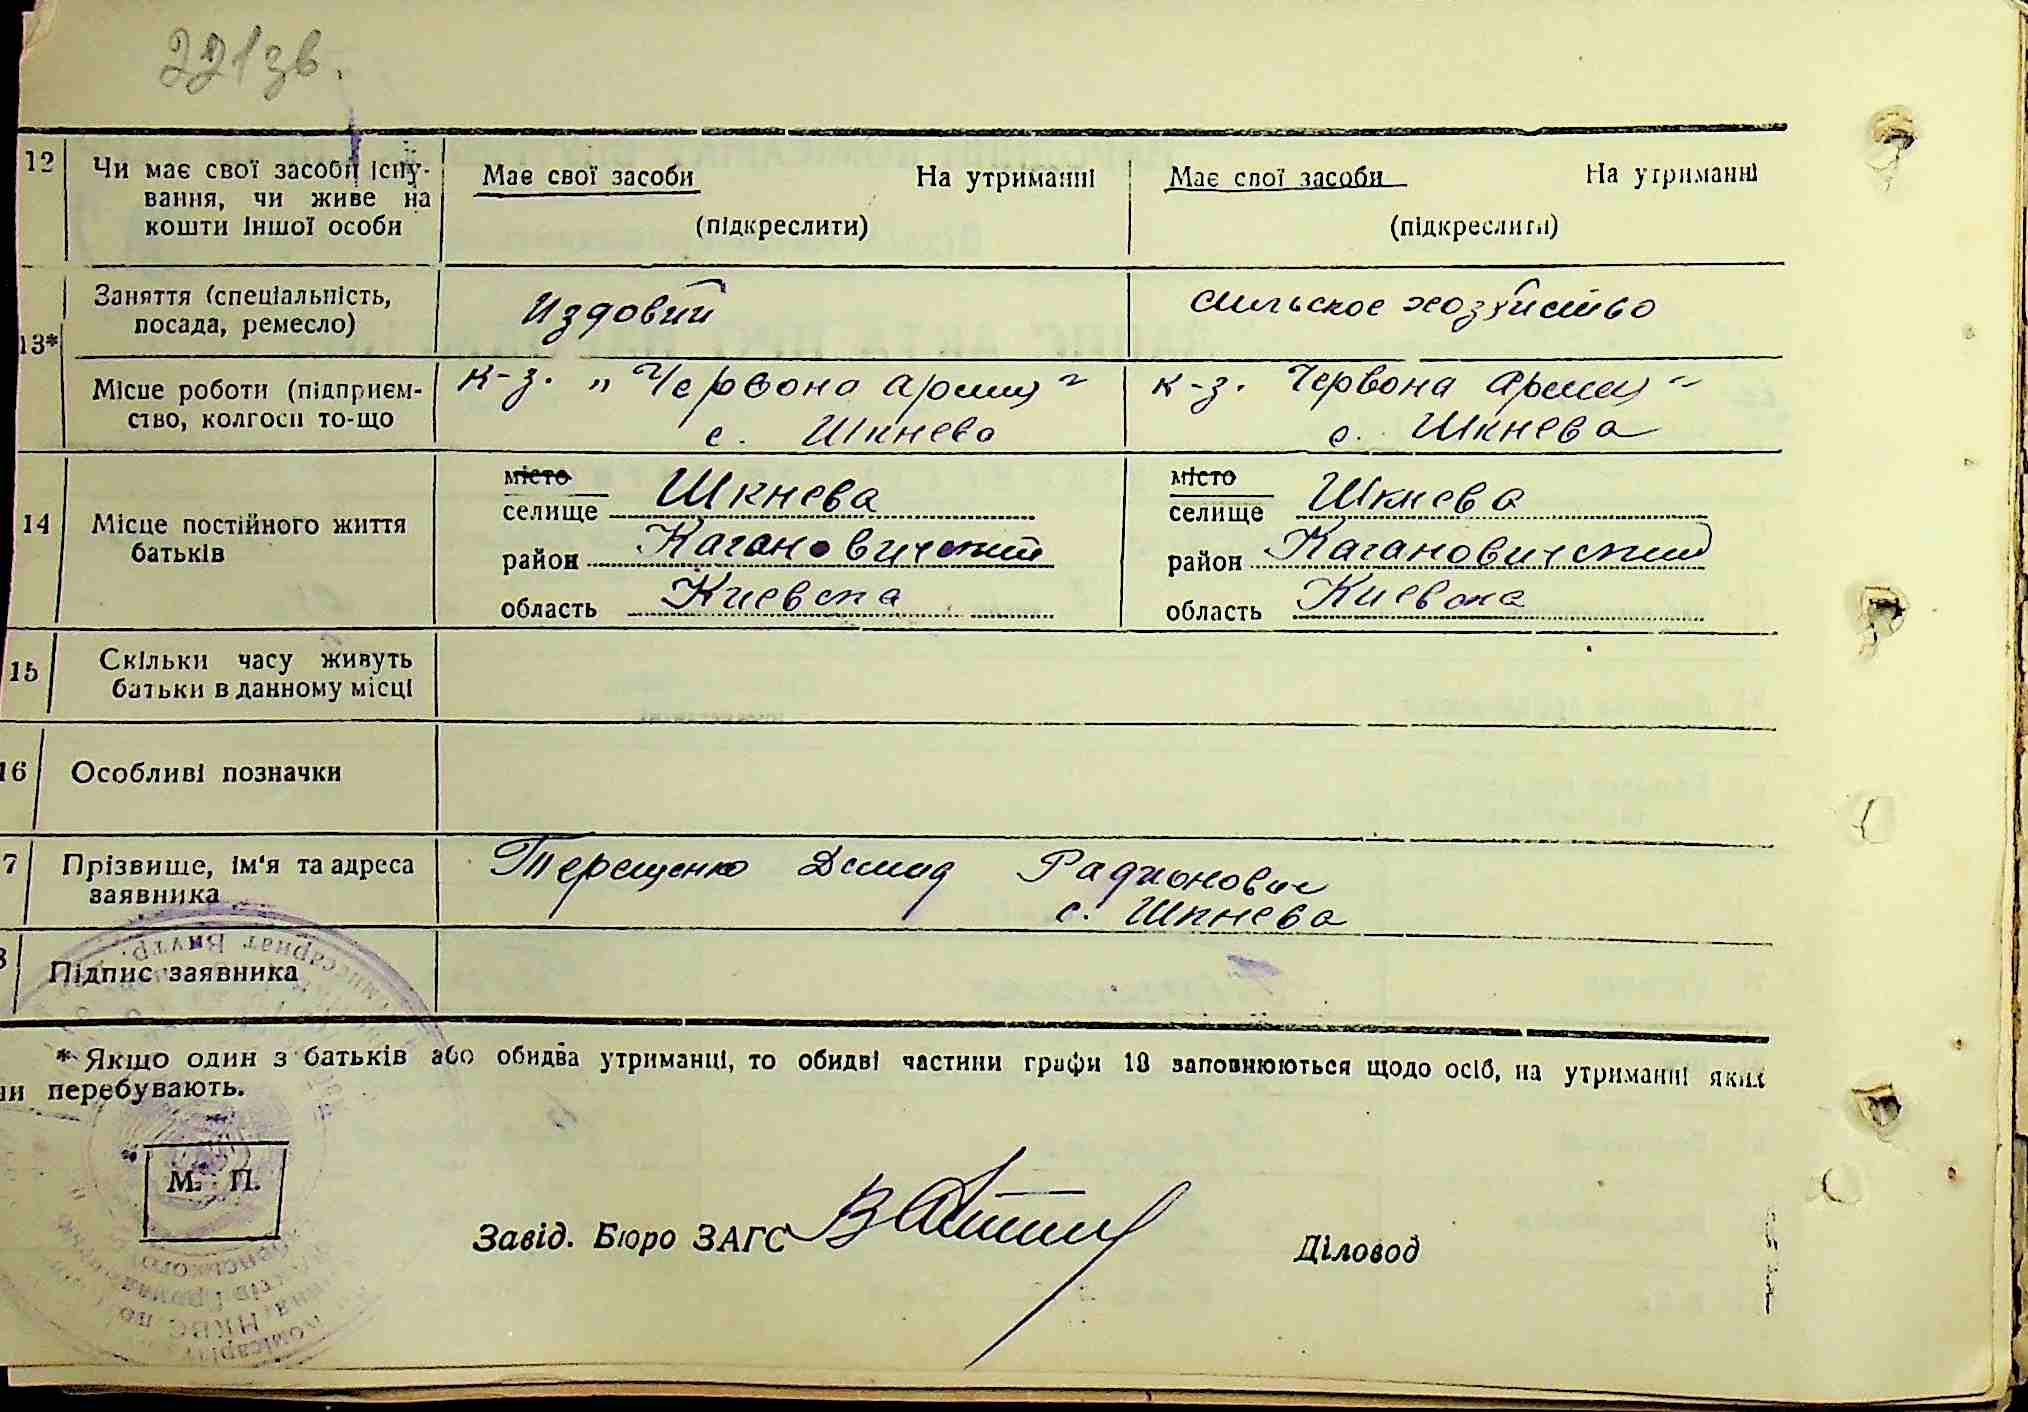 221зв.
12 Чи має свої засоби існу- Має свої засоби На утриманні Має свої засоби На утриманні
вання, чи живе на
кошти іншої особи (підкреслити) (підкреслити)
13* Заняття (спеціальність, Издовий сильское хозяйство
посада, ремесло)
Місце роботи (підприєм- к-з. „Червона армия" к-з. Червона Армия"
ство, колгосп то-що с. Шкнева с. Шкнева
14 Місце постійного життя батьків
місто місто
селище Шкнева селище Шкнева
район Кагановичский район Кагановичский
область Киевска область Киевска
15 Скільки часу живуть
батьки в данному місці
16 Особливі позначки
7 Прізвище, ім'я та адреса Терещенко Демид Радионович
заявника с. Шкнева
8 Підпис заявника
* Якщо один з батьків або обидва утриманці, то обидві частини графи 13 заповнюються щодо осіб, на утриманні яких
ни перебувають.
М. П.
Завід. Бюро ЗАГС Діловод